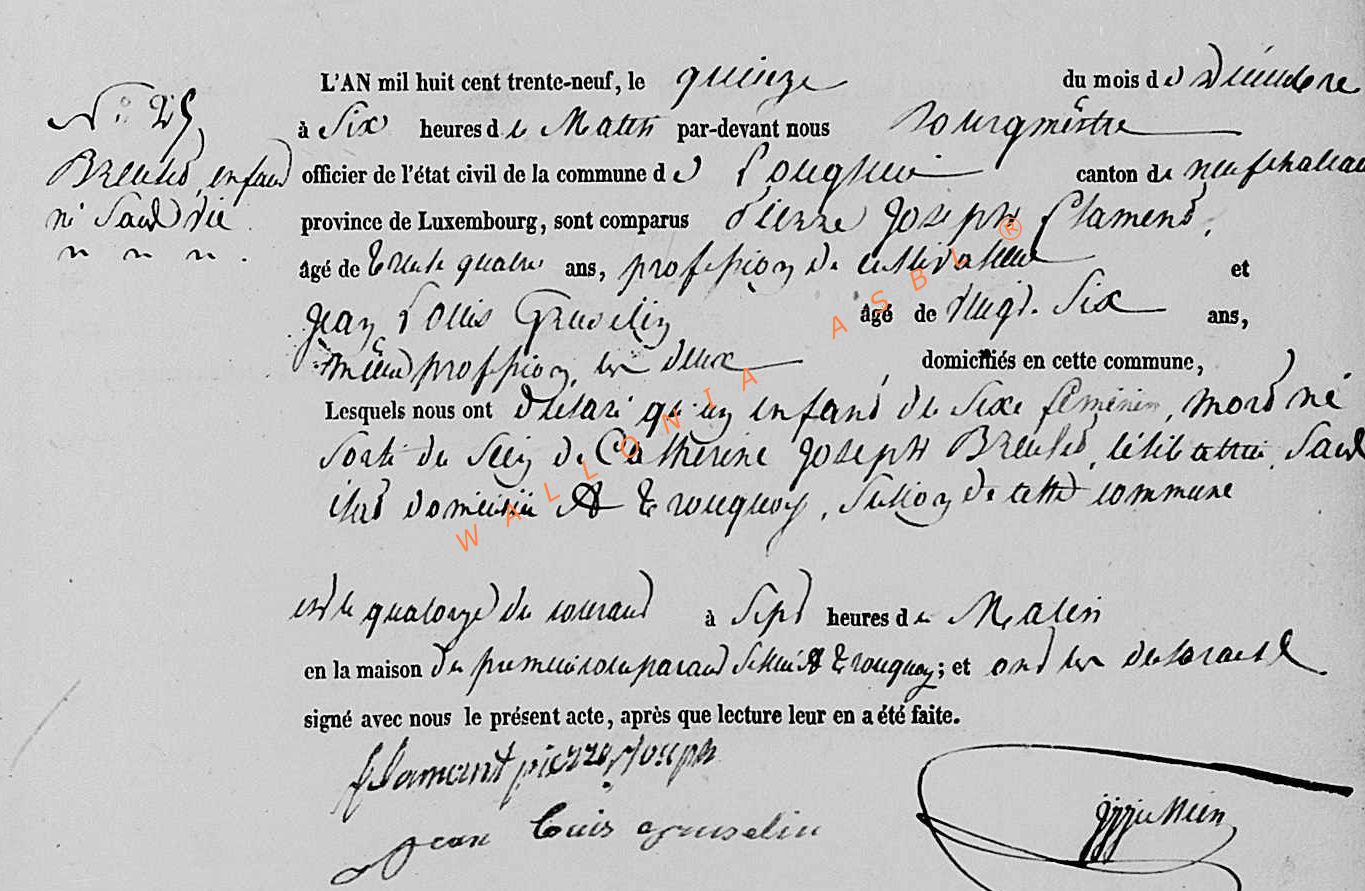 L'AN mil huit cent trente-neuf, le quinze du mois de Décembre
N° 25,
à Six heures de Matin par-devant nous Bourgmestre
Breulet, enfant officier de l'état civil de la commune de Longlier canton de neufchateau
né Sans vie province de Luxembourg, sont comparus Pierre Joseph Flament,
âgé de trente quatre ans, profession de cultivateur et
Jean Louis Gruselin âgé de vingt. Six ans,
même profession, les deux domiciliés en cette commune,
Lesquels nous ont déclaré qu'un enfant de Sexe féminin, mort né
Sorti du Sein de Catherine Joseph Breulet, célibataire, Sans
état domiciliée A tronquoy, Section de cette commune
est le quatorze du courant à Sept heures de Matin
en la maison du premier comparant Située A tronquoy; et ont les déclarants
signé avec nous le présent acte, après que lecture leur en a été faite.
flament pierre joseph
jean louis gruselin
WALLONIA ASBL ®